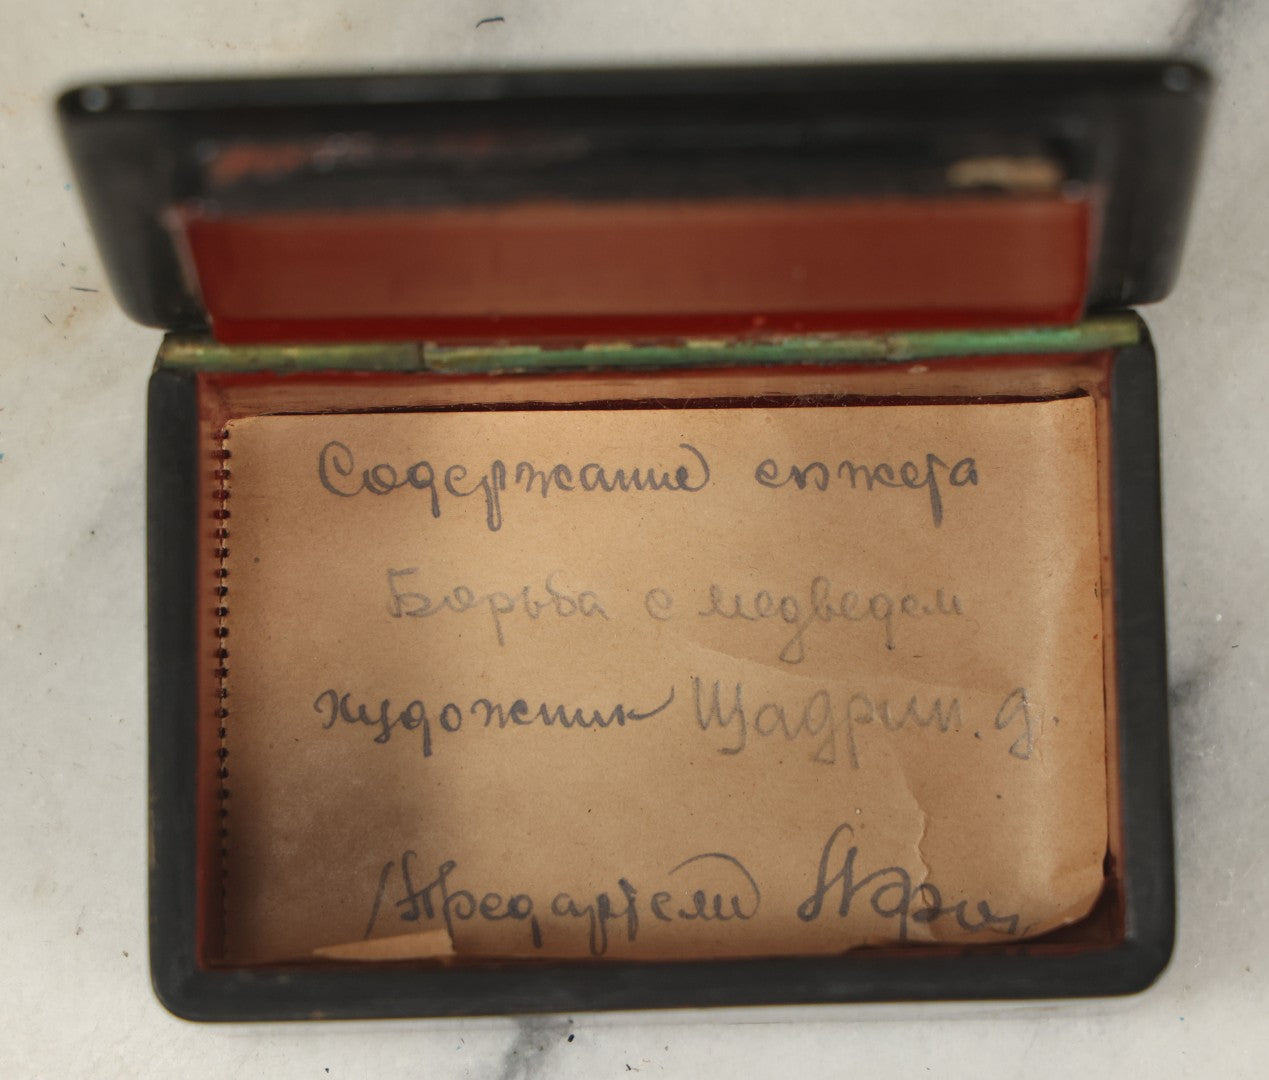 Содержание сюжета
Борьба с медведем
художник Щадрин. Д.
Пред артели